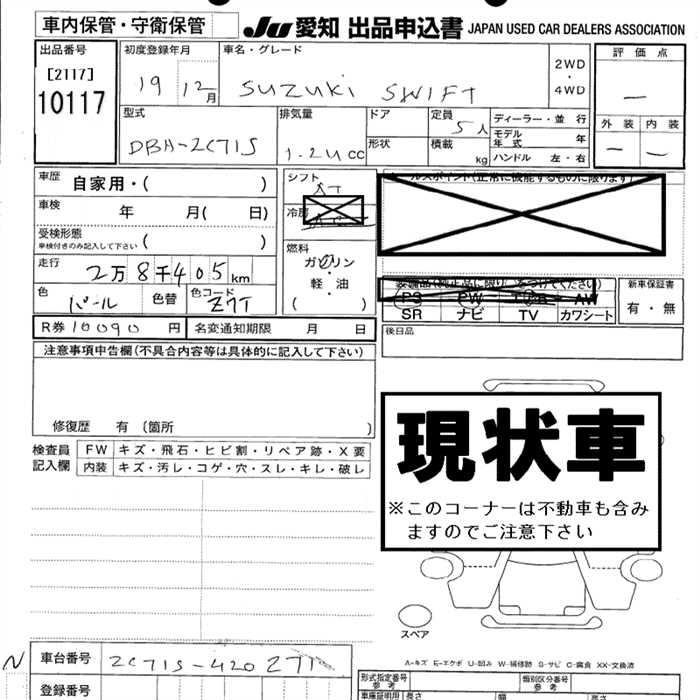 車内保管・守衛保管
JU 愛知 出品申込書 JAPAN USED CAR DEALERS ASSOCIATION
出品番号
[2117]
10117
初度登録年月
19 12月
車名・グレード
SUZUKI SWIFT
2WD
・
4WD
評価点
—
外装 内装
— —
型式
DBA-ZC71S
排気量
1.2L cc
ドア
形状
定員
5人
積載
kg
ディーラー・並行
モデル年式 年
ハンドル 左・右
車歴 自家用・( )
車検 年 月( 日)
受検形態
車検付きのみ記入して下さい ( )
走行 2万8千405km
色 パール
色替
色コード Z7T
シフト
AT
冷房
燃料
ガソリン
・
軽油
( )
セールスポイント(正常に機能するものに限ります)
装備品(純正品に限り○をつけてください)
PS PW AW
SR ナビ TV カワシート
新車保証書
有・無
後日品
R券 10090 円
名変通知期限 月 日
注意事項申告欄(不具合内容等は具体的に記入して下さい)
修復歴 有 (箇所 )
検査員記入欄
FW キズ・飛石・ヒビ割・リペア跡・X要
内装 キズ・汚レ・コゲ・穴・スレ・キレ・破レ
現状車
※このコーナーは不動車も含み
ますのでご注意下さい
スペア
A-キズ E-エクボ U-凹み W-補修跡 S-サビ C-腐食 XX-交換済
N
車台番号
ZC71S-420271
登録番号
形式指定番号
参考
類別区分番号
参考
車庫証明用
参考
長さ
幅
高さ